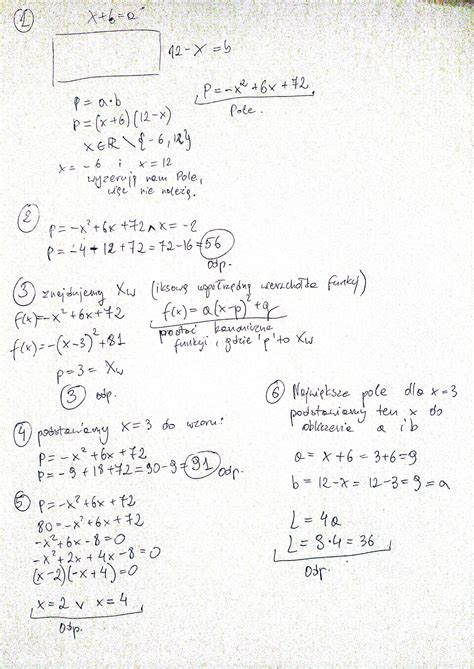 1
x+6=a
12-x=b
P=a·b
P=(x+6)(12-x)
P=-x²+6x+72
Pole.
x∈R\{-6,12}
x=-6 i x=12
wyzerują nam Pole,
więc nie należą.
2
P=-x²+6x+72 ∧ x=-2
P=-4-12+72=72-16=56
odp.
3 znajdujemy Xw (iksową współrzędną wierzchołka funkcji)
f(x)=-x²+6x+72
f(x)=a(x-p)²+q
postać kanoniczna
funkcji, gdzie 'p' to Xw
f(x)=-(x-3)²+81
p=3=Xw
3 odp.
4 podstawiamy x=3 do wzoru:
P=-x²+6x+72
P=-9+18+72=90-9=91
Odp.
5 P=-x²+6x+72
80=-x²+6x+72
-x²+6x-8=0
-x²+2x+4x-8=0
(x-2)(-x+4)=0
x=2 ∨ x=4
Odp.
6 Największe pole dla x=3
podstawiamy ten x do
obliczenia a i b
a=x+6=3+6=9
b=12-x=12-3=9=a
L=4a
L=9·4=36
Odp.